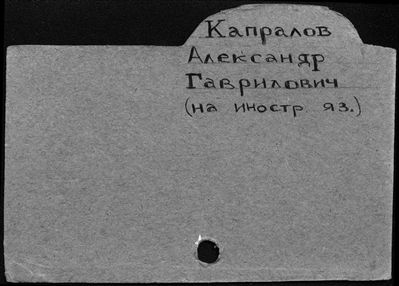 Капралов
Александр
Гаврилович
(на иностр яз.)